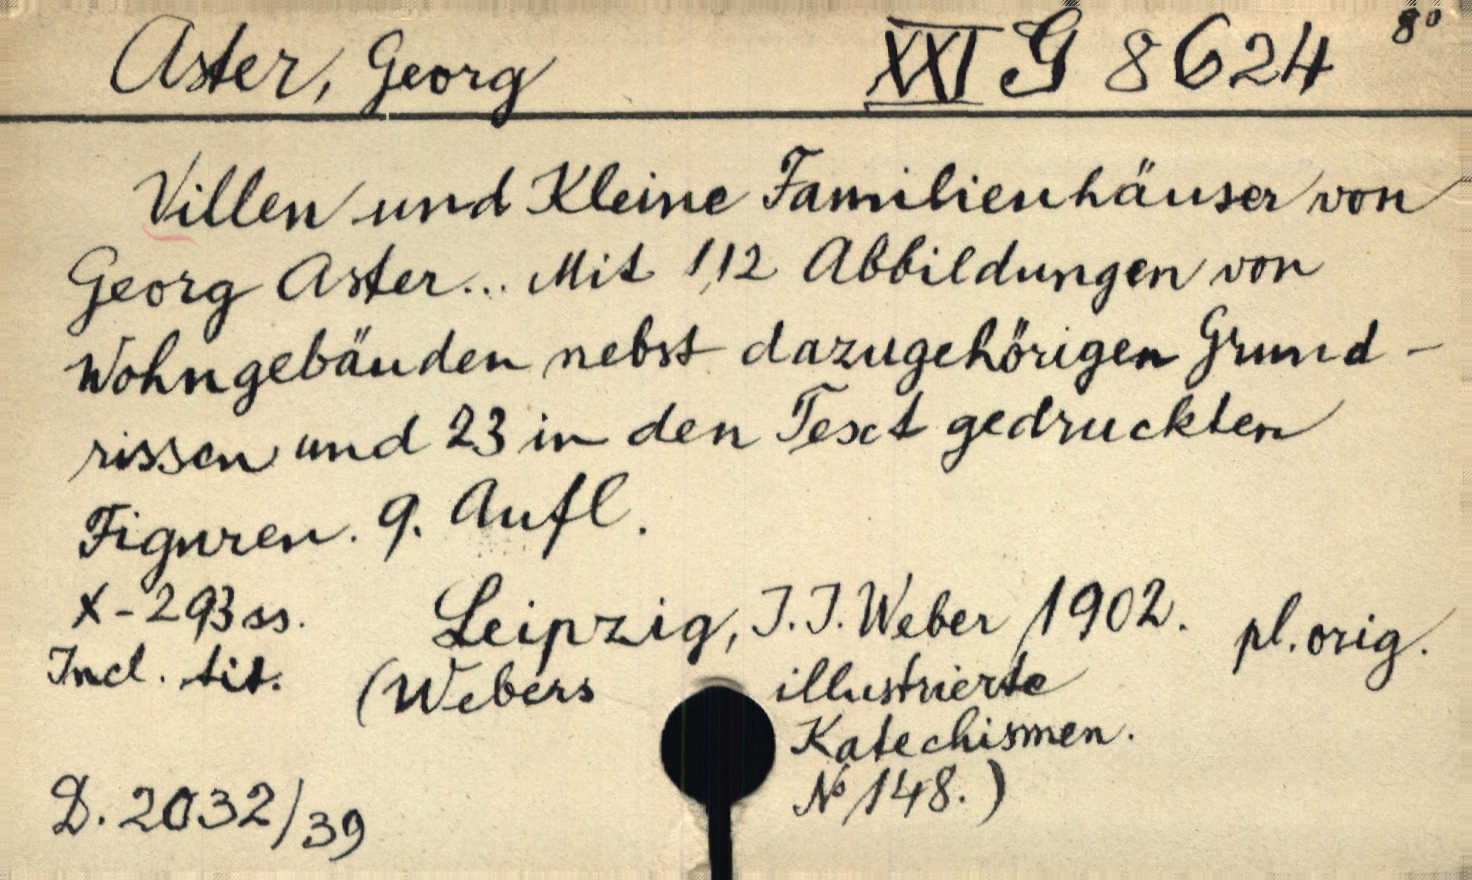 Aster, Georg XXI G 8624 8°
Villen und Kleine Familienhäuser von
Georg Aster... Mit 112 Abbildungen von
Wohngebäuden nebst dazugehörigen Grund-
rissen und 23 in den Text gedruckten
Figuren. 9. Aufl.
X-293 ss. Leipzig, J.J. Weber 1902. pl. orig.
Incl. tit. (Webers illustrierte
Katechismen.
№ 148.)
D. 2032/39